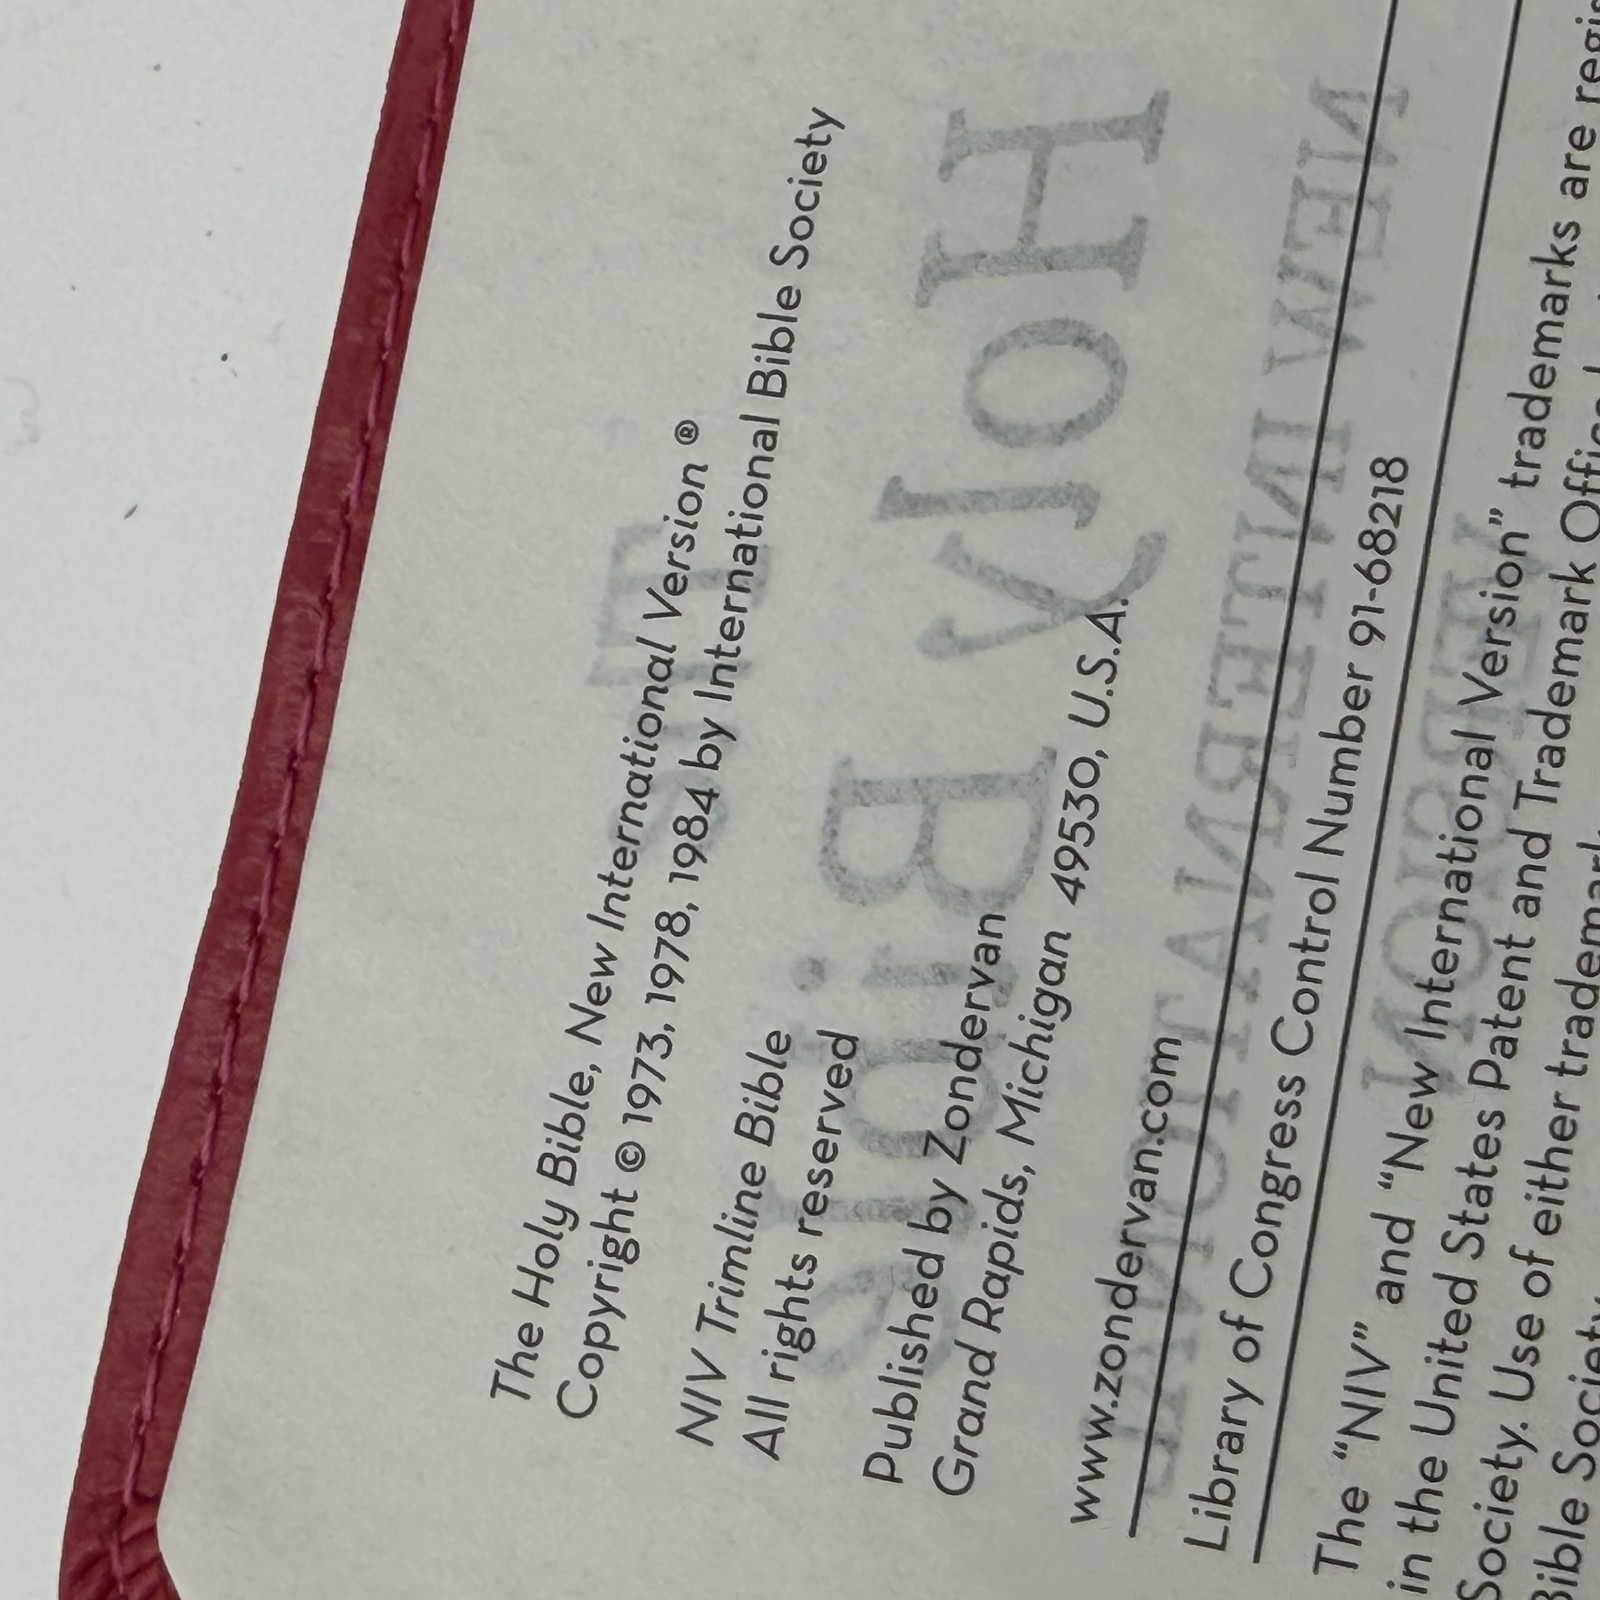 The Holy Bible, New International Version ®
Copyright © 1973, 1978, 1984 by International Bible Society
NIV Trimline Bible
All rights reserved
Published by Zondervan
Grand Rapids, Michigan 49530, U.S.A.
www.zondervan.com
Library of Congress Control Number 91-68218
The “NIV” and “New International Version” trademarks are
in the United States Patent and Trademark
Society. Use of either
Bible
Holy Bible
NEW INTERNATIONAL
VERSION